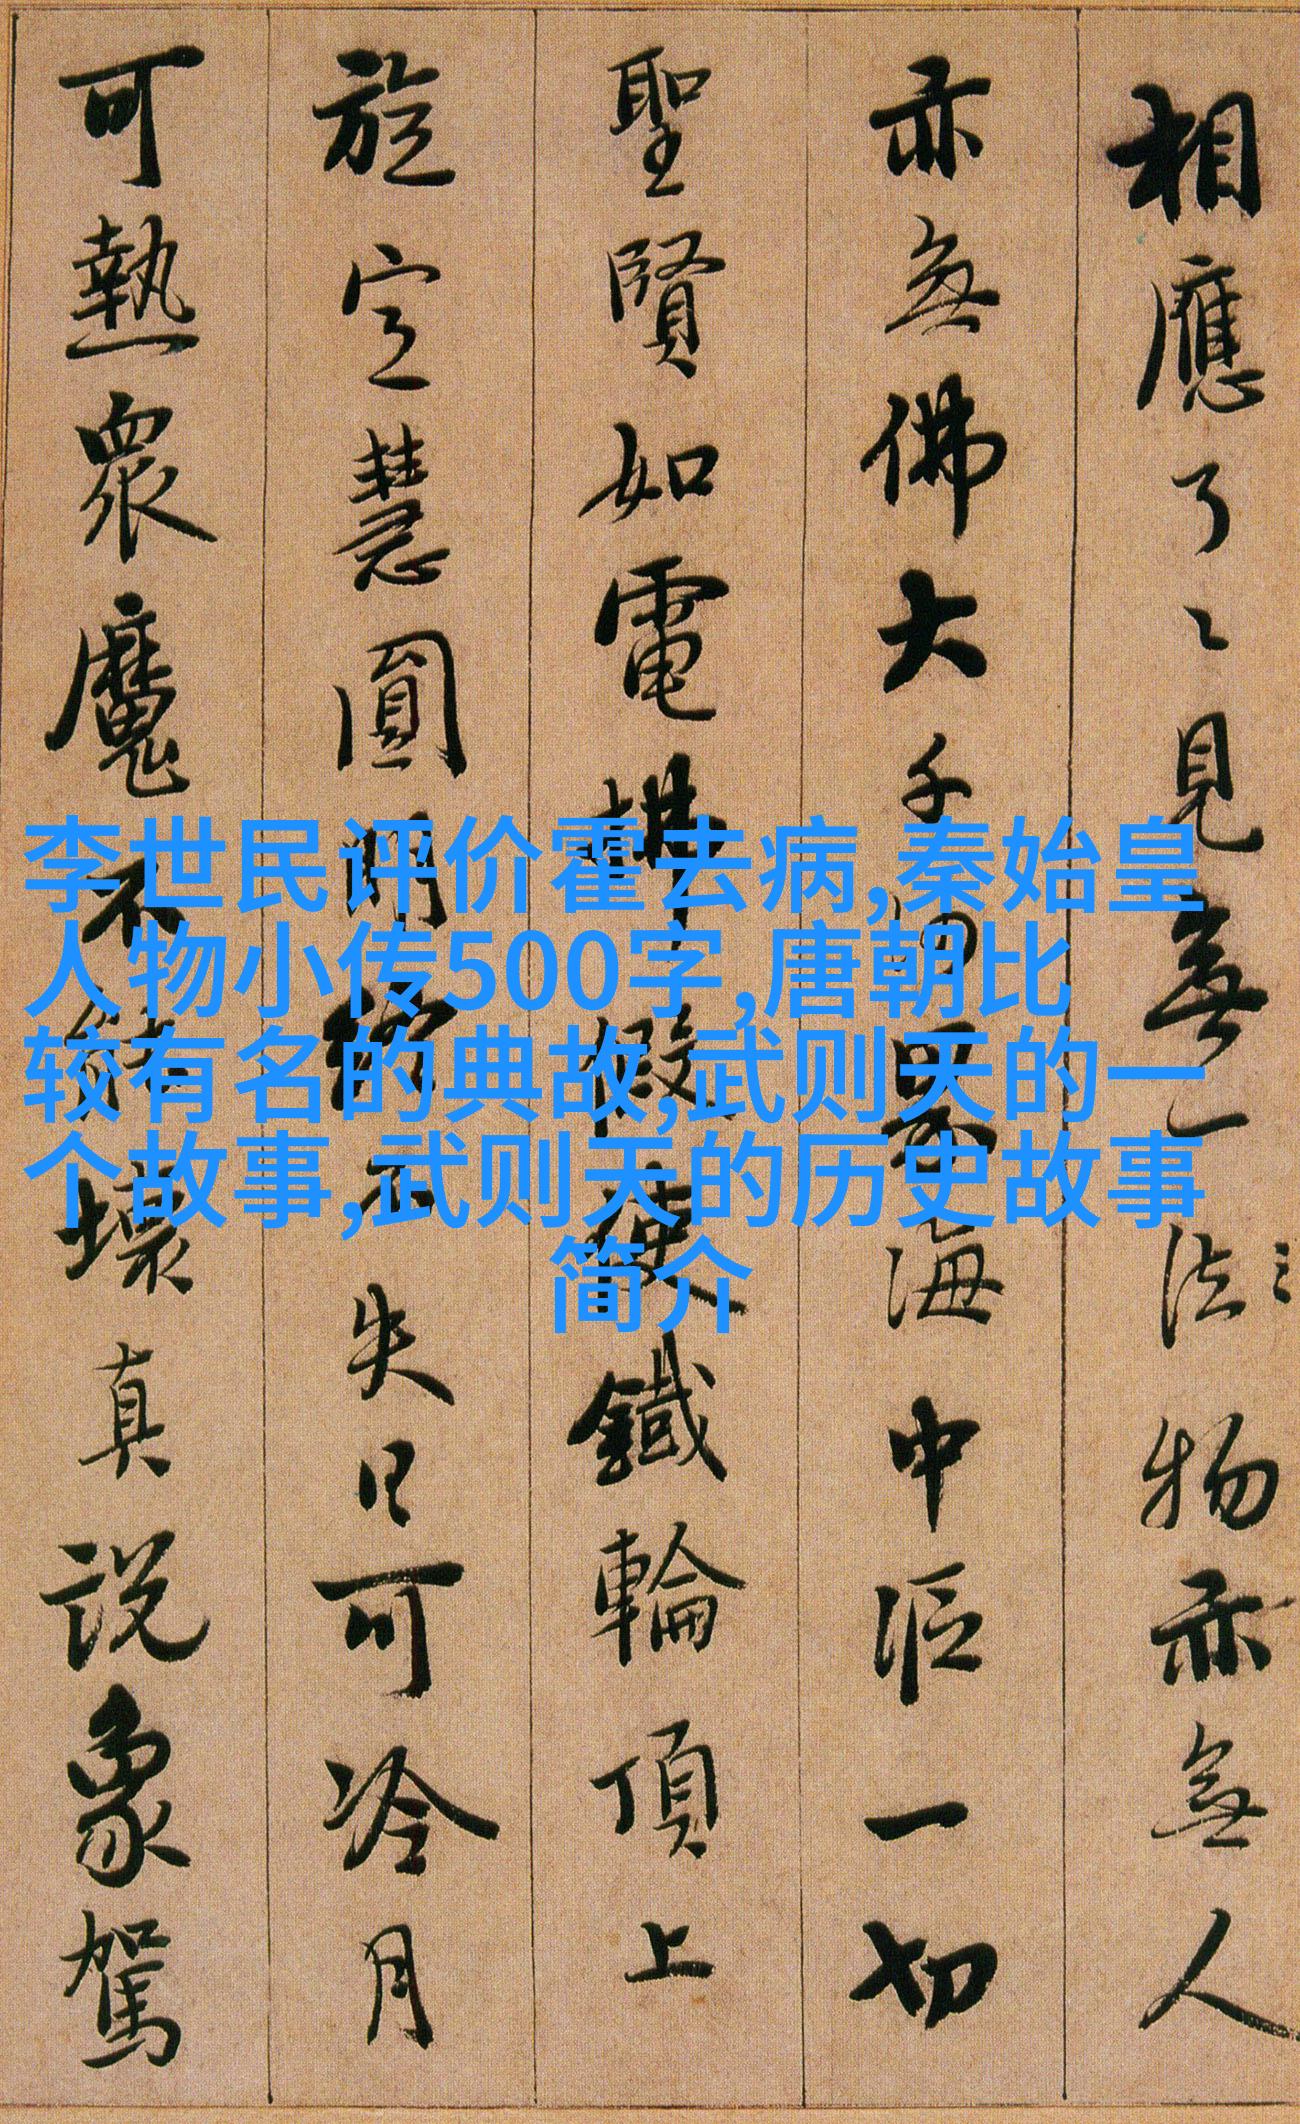 相應了〻見無一法物亦無人
亦無佛大千沙界海中漚一切
聖賢如電拂假使鐵輪頂上
旋定慧圓明終不失日可冷月
可熱眾魔不能壞真說象駕
李世民评价霍去病,秦始皇
人物小传500字,唐朝比
较有名的典故,武则天的一
个故事,武则天的历史故事
简介